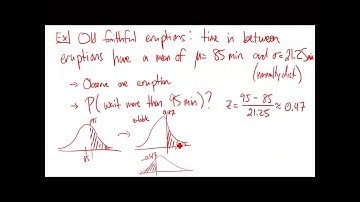 Ex) Old faithful eruptions: time in between
eruptions have a mean of μ= 85 min and σ=21.25min
(normally dist.)
→ Observe one eruption
→ P(wait more than 95 min)?
z = 95 - 85 / 21.25 ≈ 0.47
95
85
→
z-table
0.47
-0.47